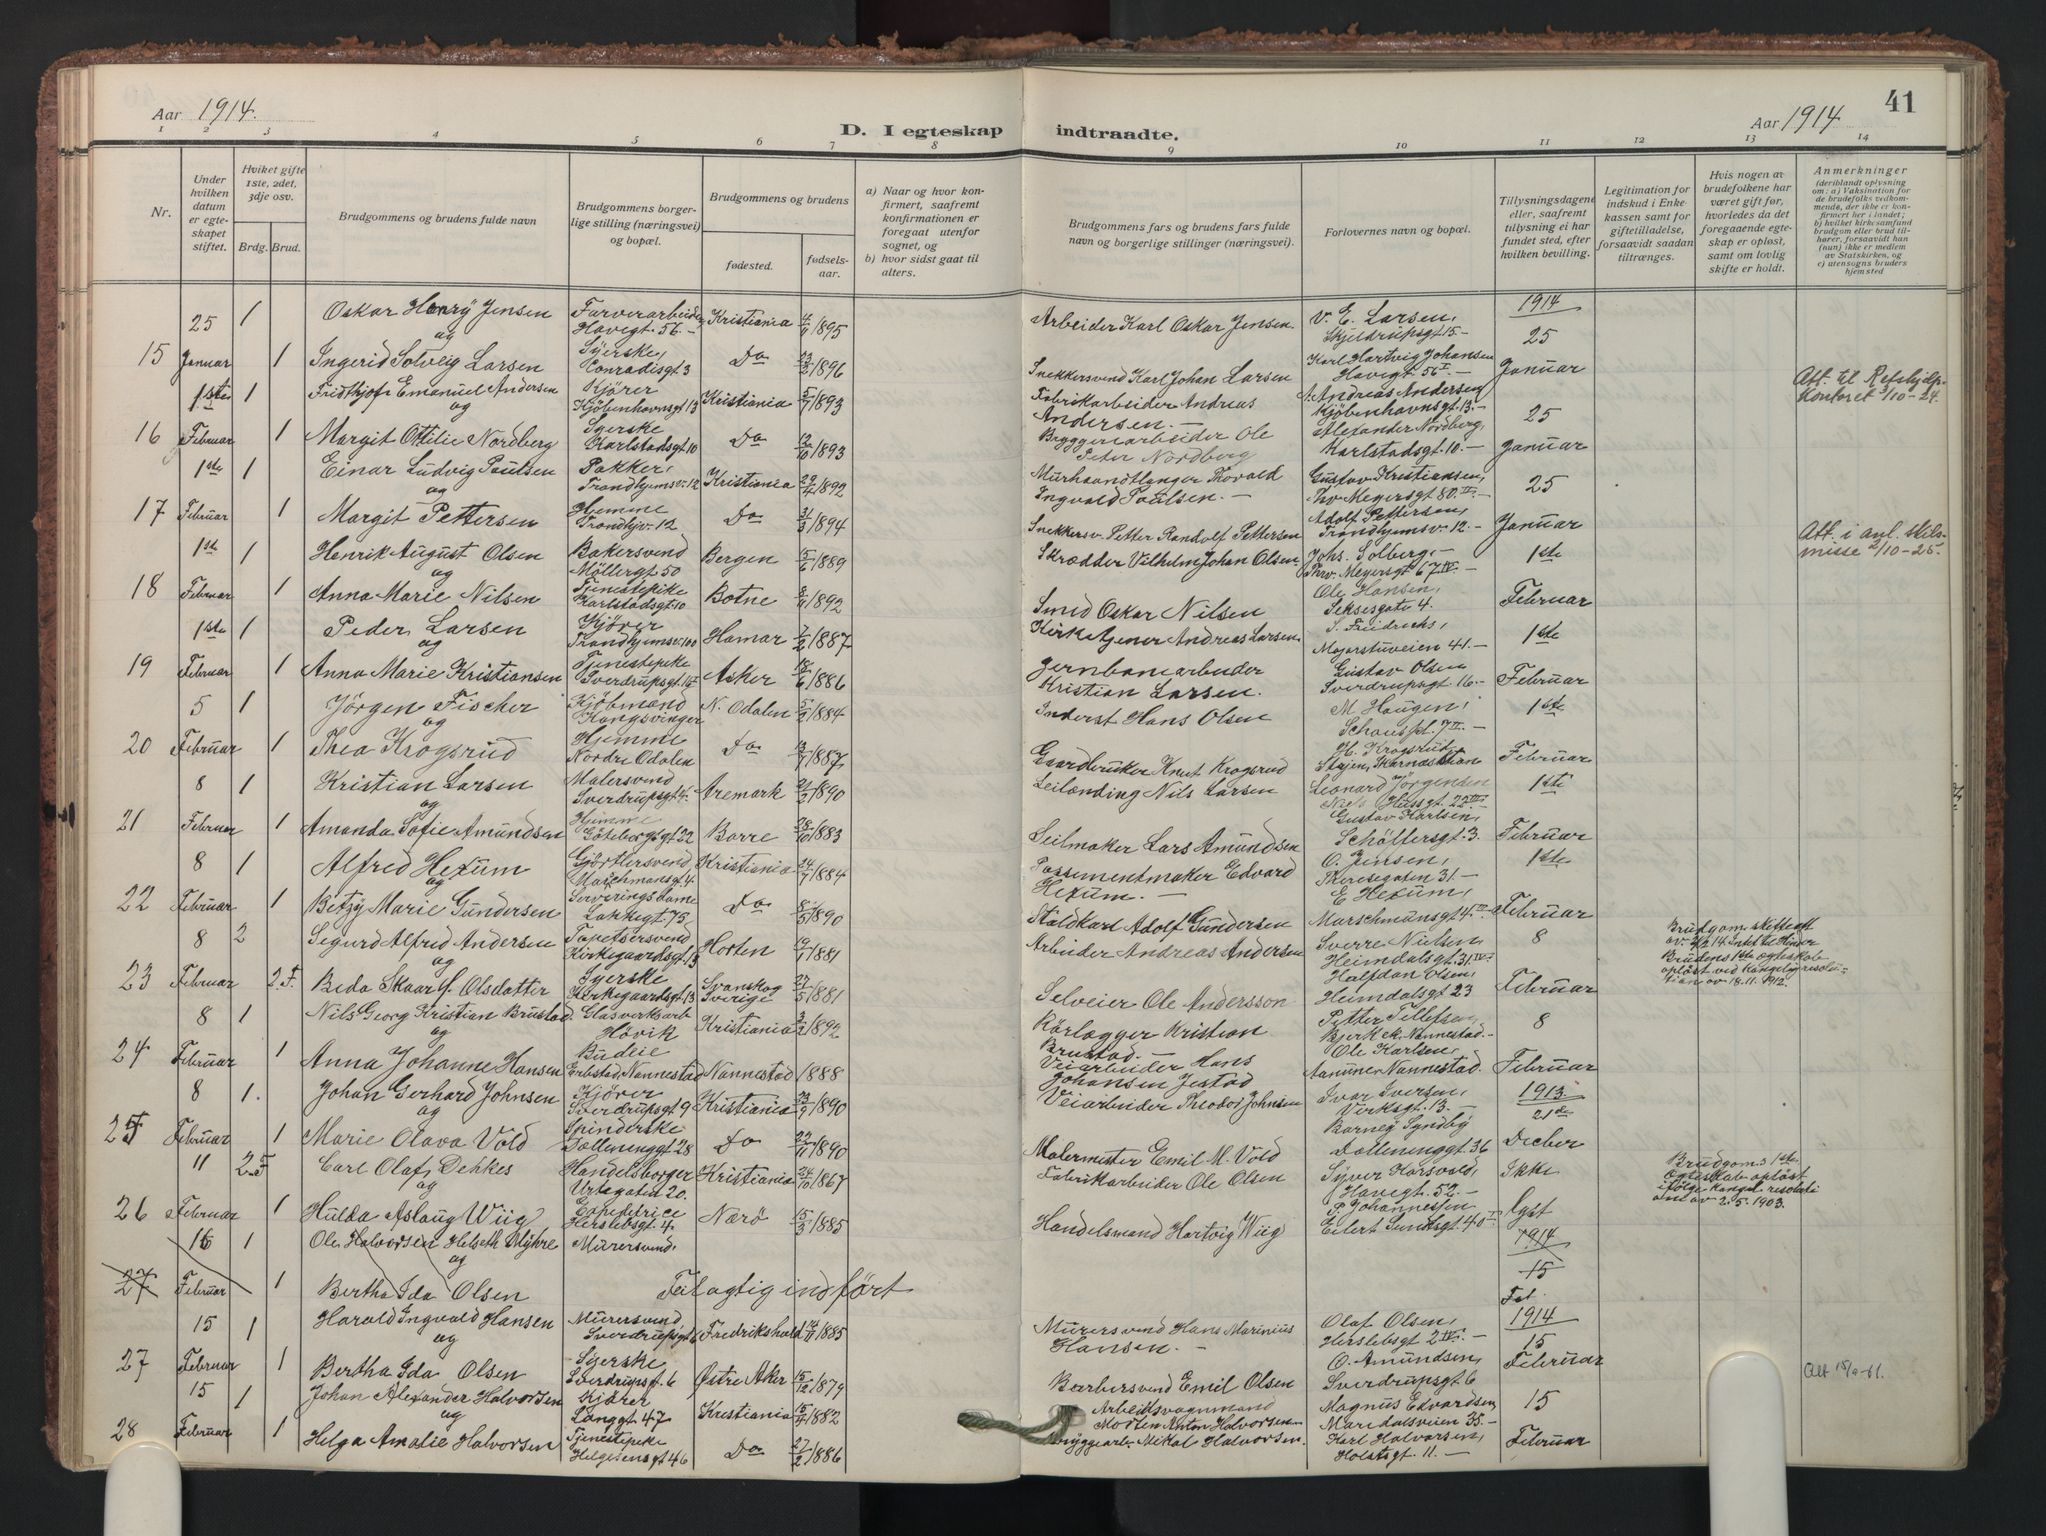 Aar 1914.
D. I egteskap indtraadte.
Aar 1914
41
1 2 3 4 5 6 7 8 9 10 11 12 13 14
Nr.
Under hvilken datum er egteskapet stiftet.
Hvilket gifte 1ste, 2det, 3dje osv.
Brdg. Brud.
Brudgommens og brudens fulde navn
Brudgommens borgerlige stilling (næringsvei) og bopæl.
Brudgommens og brudens
fødested.
fødselsaar.
a) Naar og hvor konfirmert, saafremt konfirmationen er foregaat utenfor sognet, og
b) hvor sidst gaat til alters.
Brudgommens fars og brudens fars fulde navn og borgerlige stillinger (næringsvei).
Forlovernes navn og bopæl.
Tillysningsdagene eller, saafremt tillysning ei har fundet sted, efter hvilken bevilling.
Legitimation for indskud i Enkekassen samt for giftetilladelse, forsaavidt saadan tiltrænges.
Hvis nogen av brudefolkene har været gift før, hvorledes da det foregaaende egteskap er opløst, samt om lovlig skifte er holdt.
Anmerkninger
(deriblandt oplysning om: a) Vaksination for de brudefolks vedkommende, der ikke er konfirmert her i landet; b) hvilket kirkesamfund brudgom eller brud tilhører, forsaavidt han (hun) ikke er medlem av Statskirken, og c) utensogns bruders hjemsted
1914
25 1 Oskar Henry Jensen Farverarbeider Havegt. 56 Kristiania 4/11 1895 Arbeider Karl Oskar Jensen. V. E. Larsen, Skjeldrupsgt 15 25
og
15 Januar 1 Ingerid Solveig Larsen Syerske, Conradisgt 3 Do 23/2 1896 Snekkersvend Karl Johan Larsen Karl Hartvig Johansen Havegt 56 I. Januar
1ste 1 Fridthjof Emanuel Andersen Kjörer Kjöbenhavnsgt 13 Kristiania 5/7 1893 Fabrikarbeider Andreas Andersen. Andreas Andersen, Kjöbenhavnsgt. 13. 25 Att. til Refshjelpkontoret 3/10-24.
og
16 Februar 1 Margit Ottilie Nordberg Syerske Karlstadsgt 10 Do 12/10 1893 Bryggeriarbeider Ole Peter Nordberg Alexander Nordberg, Karlstadsgt. 10. Januar
1ste 1 Einar Ludvig Paulsen Pakker, Trondhjemsv. 12 Kristiania 29/4 1892 Murhaandtlanger Thorvald Ingvald Paulsen. Gustav Kristiansen, Thv. Meyersgt 80 II. 25
og
17 Februar 1 Margit Pettersen Hjemme Trondhjv. 12 Do 31/3 1894 Snekkersv. Petter Randolf Pettersen Adolf Pettersen, Trondhjemsv. 12. Januar
1ste 1 Henrik August Olsen Bakersvend Möllergt 50 Bergen 15/6 1889 Skrædder Vilhelm Johan Olsen Johs. Solberg, Thv. Meyersgt 67 IV. 1ste Att. i anl. skilsmisse 2/10-25.
og
18 Februar 1 Anna Marie Nilsen Tjenestepike Karlstadsgt. 10 Botne 8/11 1892 Smed Oskar Nilsen Ole Hansen, Seksesgate 4. Februar
1ste 1 Peder Larsen Kjörer Trondhjemsv. 100 Hamar 7/2 1887 Kirketjener Andreas Larsen. S. Friedrichs, Majorstuveien 41. 1ste
og
19 Februar 1 Anna Marie Kristiansen Tjenestepike Sverdrupsgt 16 Asker 18/6 1886 Jernbanearbeider Kristian Larsen. Gustav Olsen Sverdrupsgt. 16. Februar
5 1 Jörgen Fischer Kjöbmand Kongsvinger N. Odalen 5/2 1884 Inderst Hans Olsen M Haugen, Schouspl. 7 II. 1ste
og
20 Februar 1 Thea Krogsrud Hjemme Nordre Odalen Do 13/7 1887 Gaardbruker Knut Krogsrud H. Krogsrud, Februar
8 1 Kristian Larsen Malersvend Sverdrupsgt 4. Aremark 21/2 1890 Leilending Nils Larsen Leonard Jörgensen Niels Juelsgt. 22 III 1ste
og
21 Februar 1 Amanda Sofie Amundsen Hjemme Göteborgsgt 22 Borre 28/10 1883 Seilmaker Lars Amundsen Gustav Karlsen, Schöffersgt. 3. Februar
8 1 Alfred Hexum Gjörtlersvend Marchmansgt 4. Kristiania 24/7 1884 Possementmaker Edvard Hexum. O. Jensen, Theresegaten 31. 1ste
og
22 Februar 1 Betzy Marie Gundersen Serveringsdame Lakkegt. 75 Do 8/5 1890 Staldkarl Adolf Gundersen E Hexum, Marschmansgt 4 III Februar
8 2 Sigurd Alfred Andersen Tapetsersvend Kirkegaardsgt. 13 Horten 19/1 1881 Arbeider Andreas Andersen Sverre Nielsen, Heimdalsgt. 31 IV 8 Brudgom. skifteatt av Brudens 1ste ægteskab opløst ved Kongelig resolution av 18. 11. 1912.
og
23 Februar 2. F. Beda Skaar f. Olsdatter Syerske Kirkegaardsgt. 13 Svanskog Sverige 27/5 1881 Selveier Ole Andersson Halfdan Olsen, Heimdalsgt 23 Februar
8 1 Nils Georg Kristian Brustad. Glasverksarb Hövik Kristiania 3/2 1892 Rörlægger Kristian Brustad. Petter Tellefsen, Bjerk ek. Nannestad. 8
og
24 Februar 1 Anna Johanne Hansen Budeie Nannestad Nannestad 1888 Veiarbeider Hans Johansen Ole Karlsen, Nannestad. Februar
8 1. Johan Gerhard Johnsen Kjörer Sverdrupsgt 9 Kristiania 23/9 1890 Veiarbeider Theodor Johnsen Ivar Iversen, Verksgt. 13. 1913. 21de
og
25 Februar 1 Marie Olava Vold Spinderske Tollerudgt 28 Do 22/11 1890 Malermester Emil M. Vold Barney Syndby 36 Decber
11 2. F Carl Olaf Dehkes Handelsborger Urtegaten 20. Kristiania 24/10 1867 Fabrikarbeider Ole Olsen Syver Havegt. 52. Ikke Brudgoms 1ste Egteskab opløst ifølge kongel. resolution av 2. 5. 1903.
og
26 Februar 1 Hulda Aslaug Wiig Expeditrice Herslebsgt. 4. Nærö 15/3 1885 Handelsmand Hartvig Wiig P. Johannesen Eilert Sundtsgt 40 I lyst
16 1 Ole Halvorsen Helseth Myhre Murersvend. 1914 15
og
27 Februar 1 Bertha Ida Olsen Feilagtig indført Feb.
15 1 Harald Ingvald Hansen Murersvend, Sverdrupsgt 6 Fredrikshald 14/11 1885 Murersvend Hans Marinius Hansen. Olaf Olsen, Herslebsgt 2 IV. 1914 15
og
27 Februar 1 Bertha Ida Olsen Syerske Sverdrupsgt. 6 Østre Aker 15/12 1879 Barbersvend Emil Olsen O. Amundsen, Sverdrupsgt. 6 Februar Att 15/9-61.
15 1 Johan Alexander Halvorsen Kjörer Langgt. 47 Kristiania 15/4 1882 Arbeidsvognmand Morten Anton Halvorsen Magnus Edvardsen Maridalsveien 35. 15
og
28 Februar 1 Helga Amalie Halvorsen Tjenestepike Helgesensgt 46 Do 27/2 1886 Bryggearb. Mikal Halvorsen. Karl Halvorsen, Holstsgt. 11. Februar